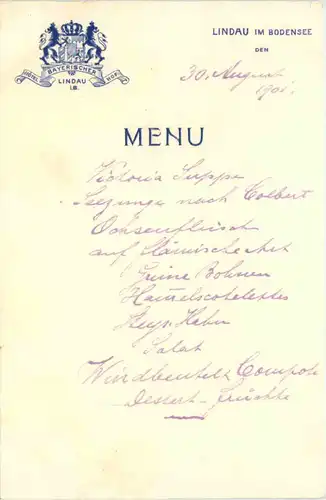 LINDAU IM BODENSEE
DEN
30. August
1901.
HÔTEL BAYERISCHER HOF
LINDAU
i/B.
MENU
Victoria Suppe
Seezunge nach Colbert
Ochsenfleisch
auf flämische Art
Grüne Bohnen
Hammelscotelettes
Steyr. Hahn
Salat
Windbeutel Compote
Dessert - Früchte